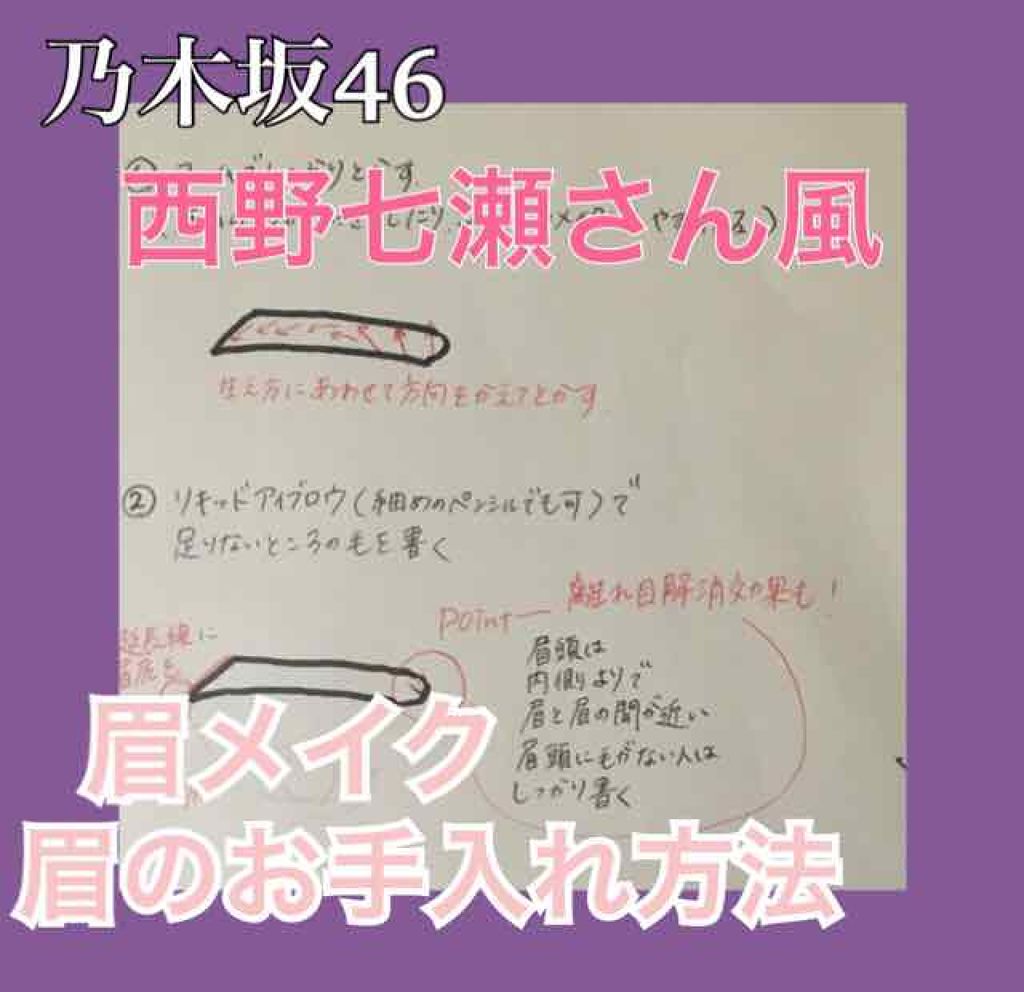 乃木坂46
西野七瀬さん風
①
りとかす
生え方にあわせて方向をかえてとかす
② リキッドアイブロウ(細めのペンシルでも可)で
足りないところの毛を書く
point 離れ目解消効果も!
延長線に
眉頭は
内側よりで
眉と眉の間が近い
眉頭に毛がない人は
しっかり書く
眉メイク
眉のお手入れ方法